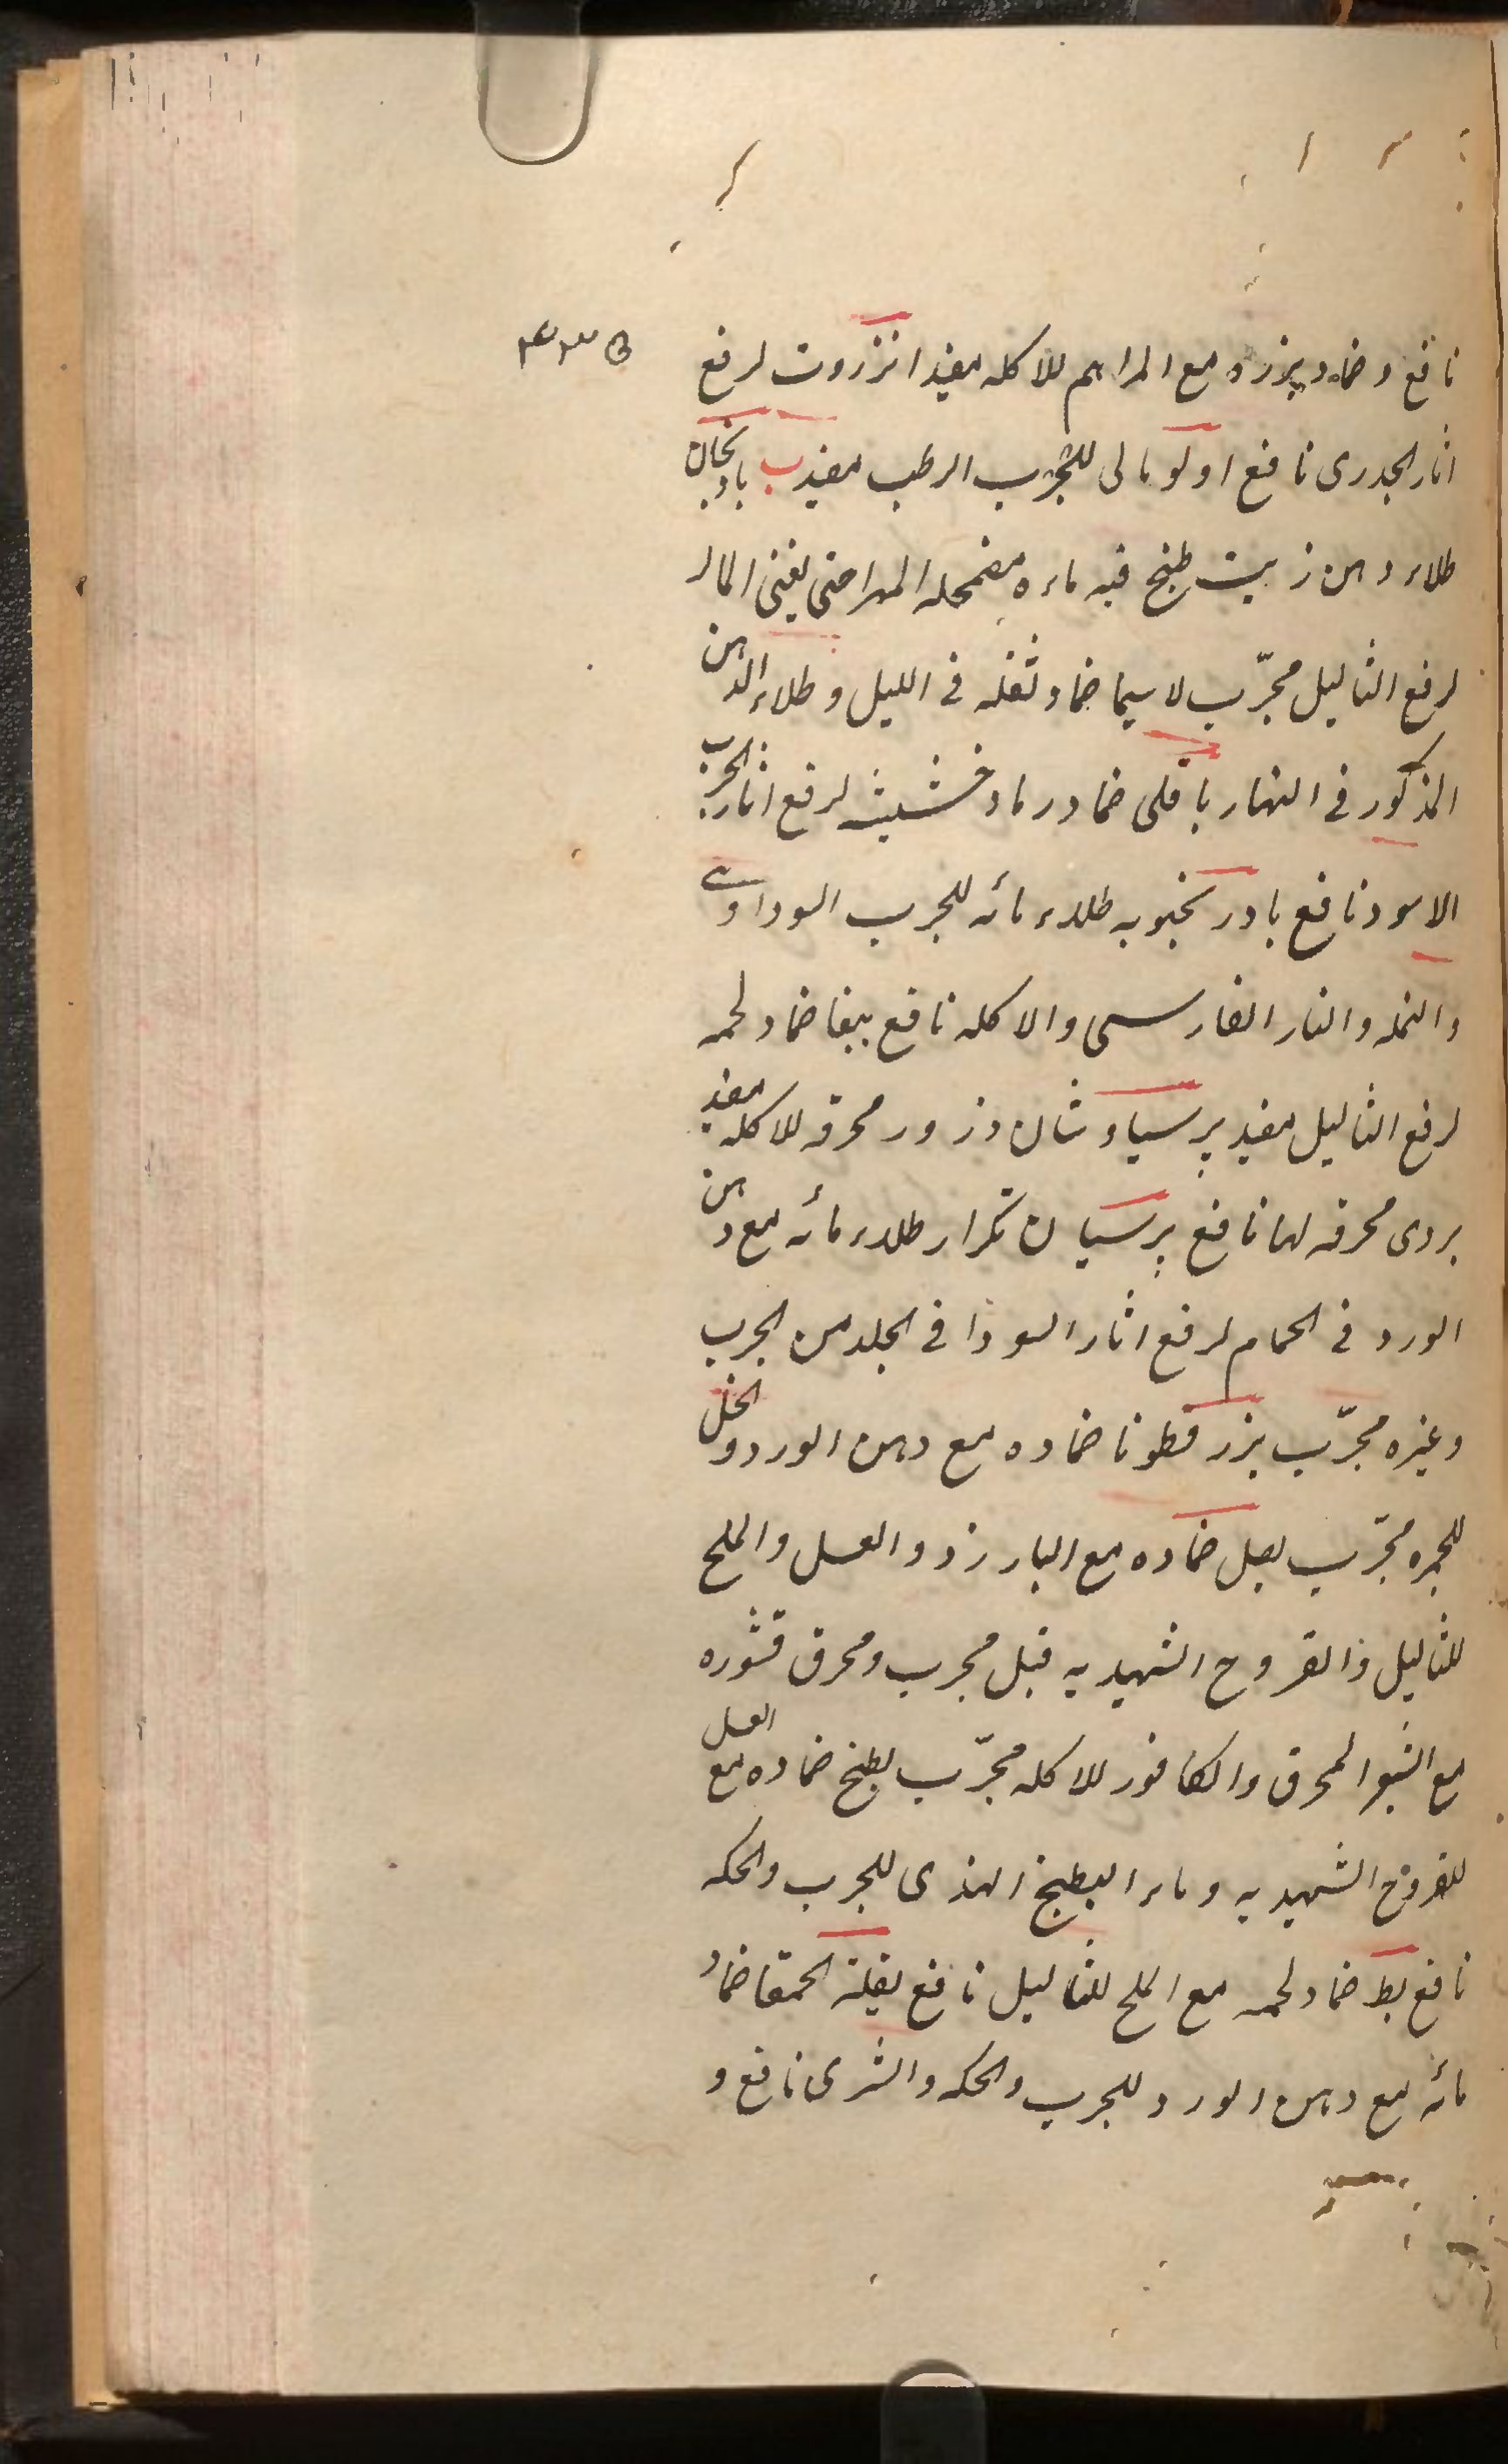 نافع و ضماد بزره مع المراهم للاكله مفيد انزروت لرفع
اثار الجدرى نافع اولومالى للجرب الرطب مفيد ب بادنجان
طلاء دهن زيت طبخ فيه ماءه مضمحله المهرا حتى يفنى الماء
لرفع الثاليل مجرّب لا سيما ضماد ثفله فى الليل و طلاء الدهن
المذكور فى النهار باقلى ضماد رماد خشبه لرفع اثار الجرب
الاسود نافع بادرنجبويه طلاء مائه للجرب السوداوى
والنمله والنار الفارسى والاكله نافع ببغا ضماد لحمه
لرفع الثاليل مفيد پرسياوشان ذرور محرقه للاكله مفيد
بردى محرقه لها نافع برسيان تكرار طلاء مائه مع دهن
الورد فى الحمام لرفع اثار السودا فى الجلد من الجرب
وغيره مجرّب بزرقطونا ضماده مع دهن الورد و الخل
للجمره مجرّب بصل ضماده مع البارزد والعسل والملح
للثاليل والقروح الشهديه قبل مجرب ومحرق قشوره
مع الشعر المحرق والكافور للاكله مجرّب بطيخ ضماده مع العسل
للقروح الشهديه وماء البطيخ الهندى للجرب والحكه
نافع بط ضماد لحمه مع الملح للثاليل نافع بقلة الحمقا ضماد
مائه مع دهن الورد للجرب والحكه والشرى نافع و